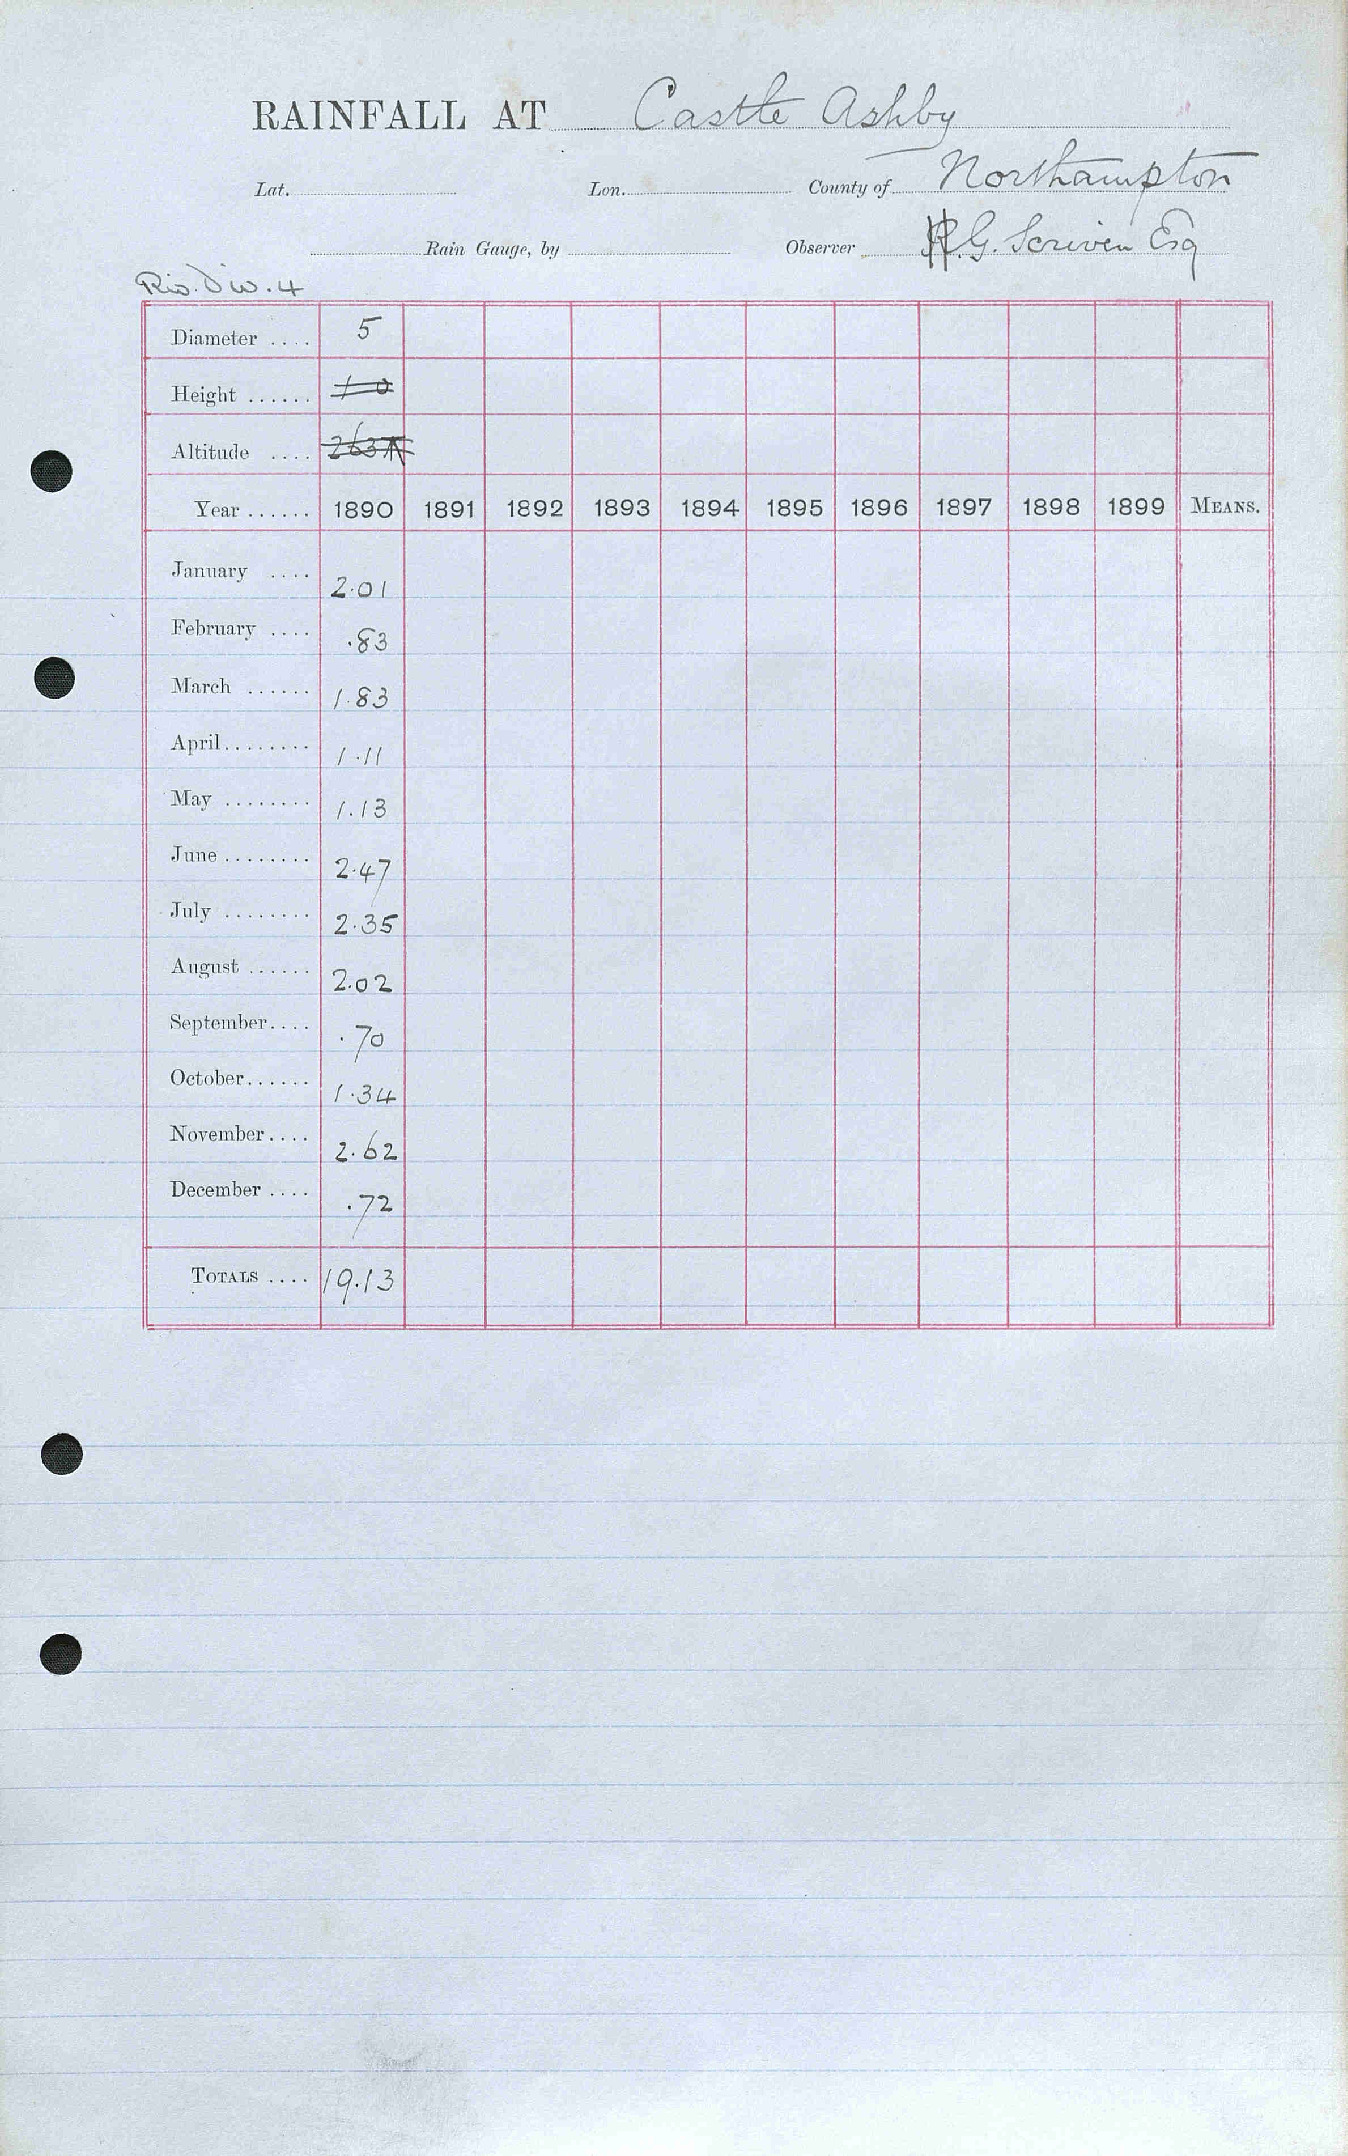 RAINFALL AT Castle Ashby
Lat. Lon. County of Northampton
Rain Gauge, by Observer G. Scriven Esq
Riv. Div. 4
Diameter .... 5
Height ...... 1 0
Altitude .... 263
Year ...... 1890 1891 1892 1893 1894 1895 1896 1897 1898 1899 MEANS.
January .... 2.01
February .... .83
March ...... 1.83
April ........ 1.11
May ........ 1.13
June ........ 2.47
July ........ 2.35
August ...... 2.02
September .... .70
October ...... 1.34
November .... 2.62
December .... .72
TOTALS .... 19.13